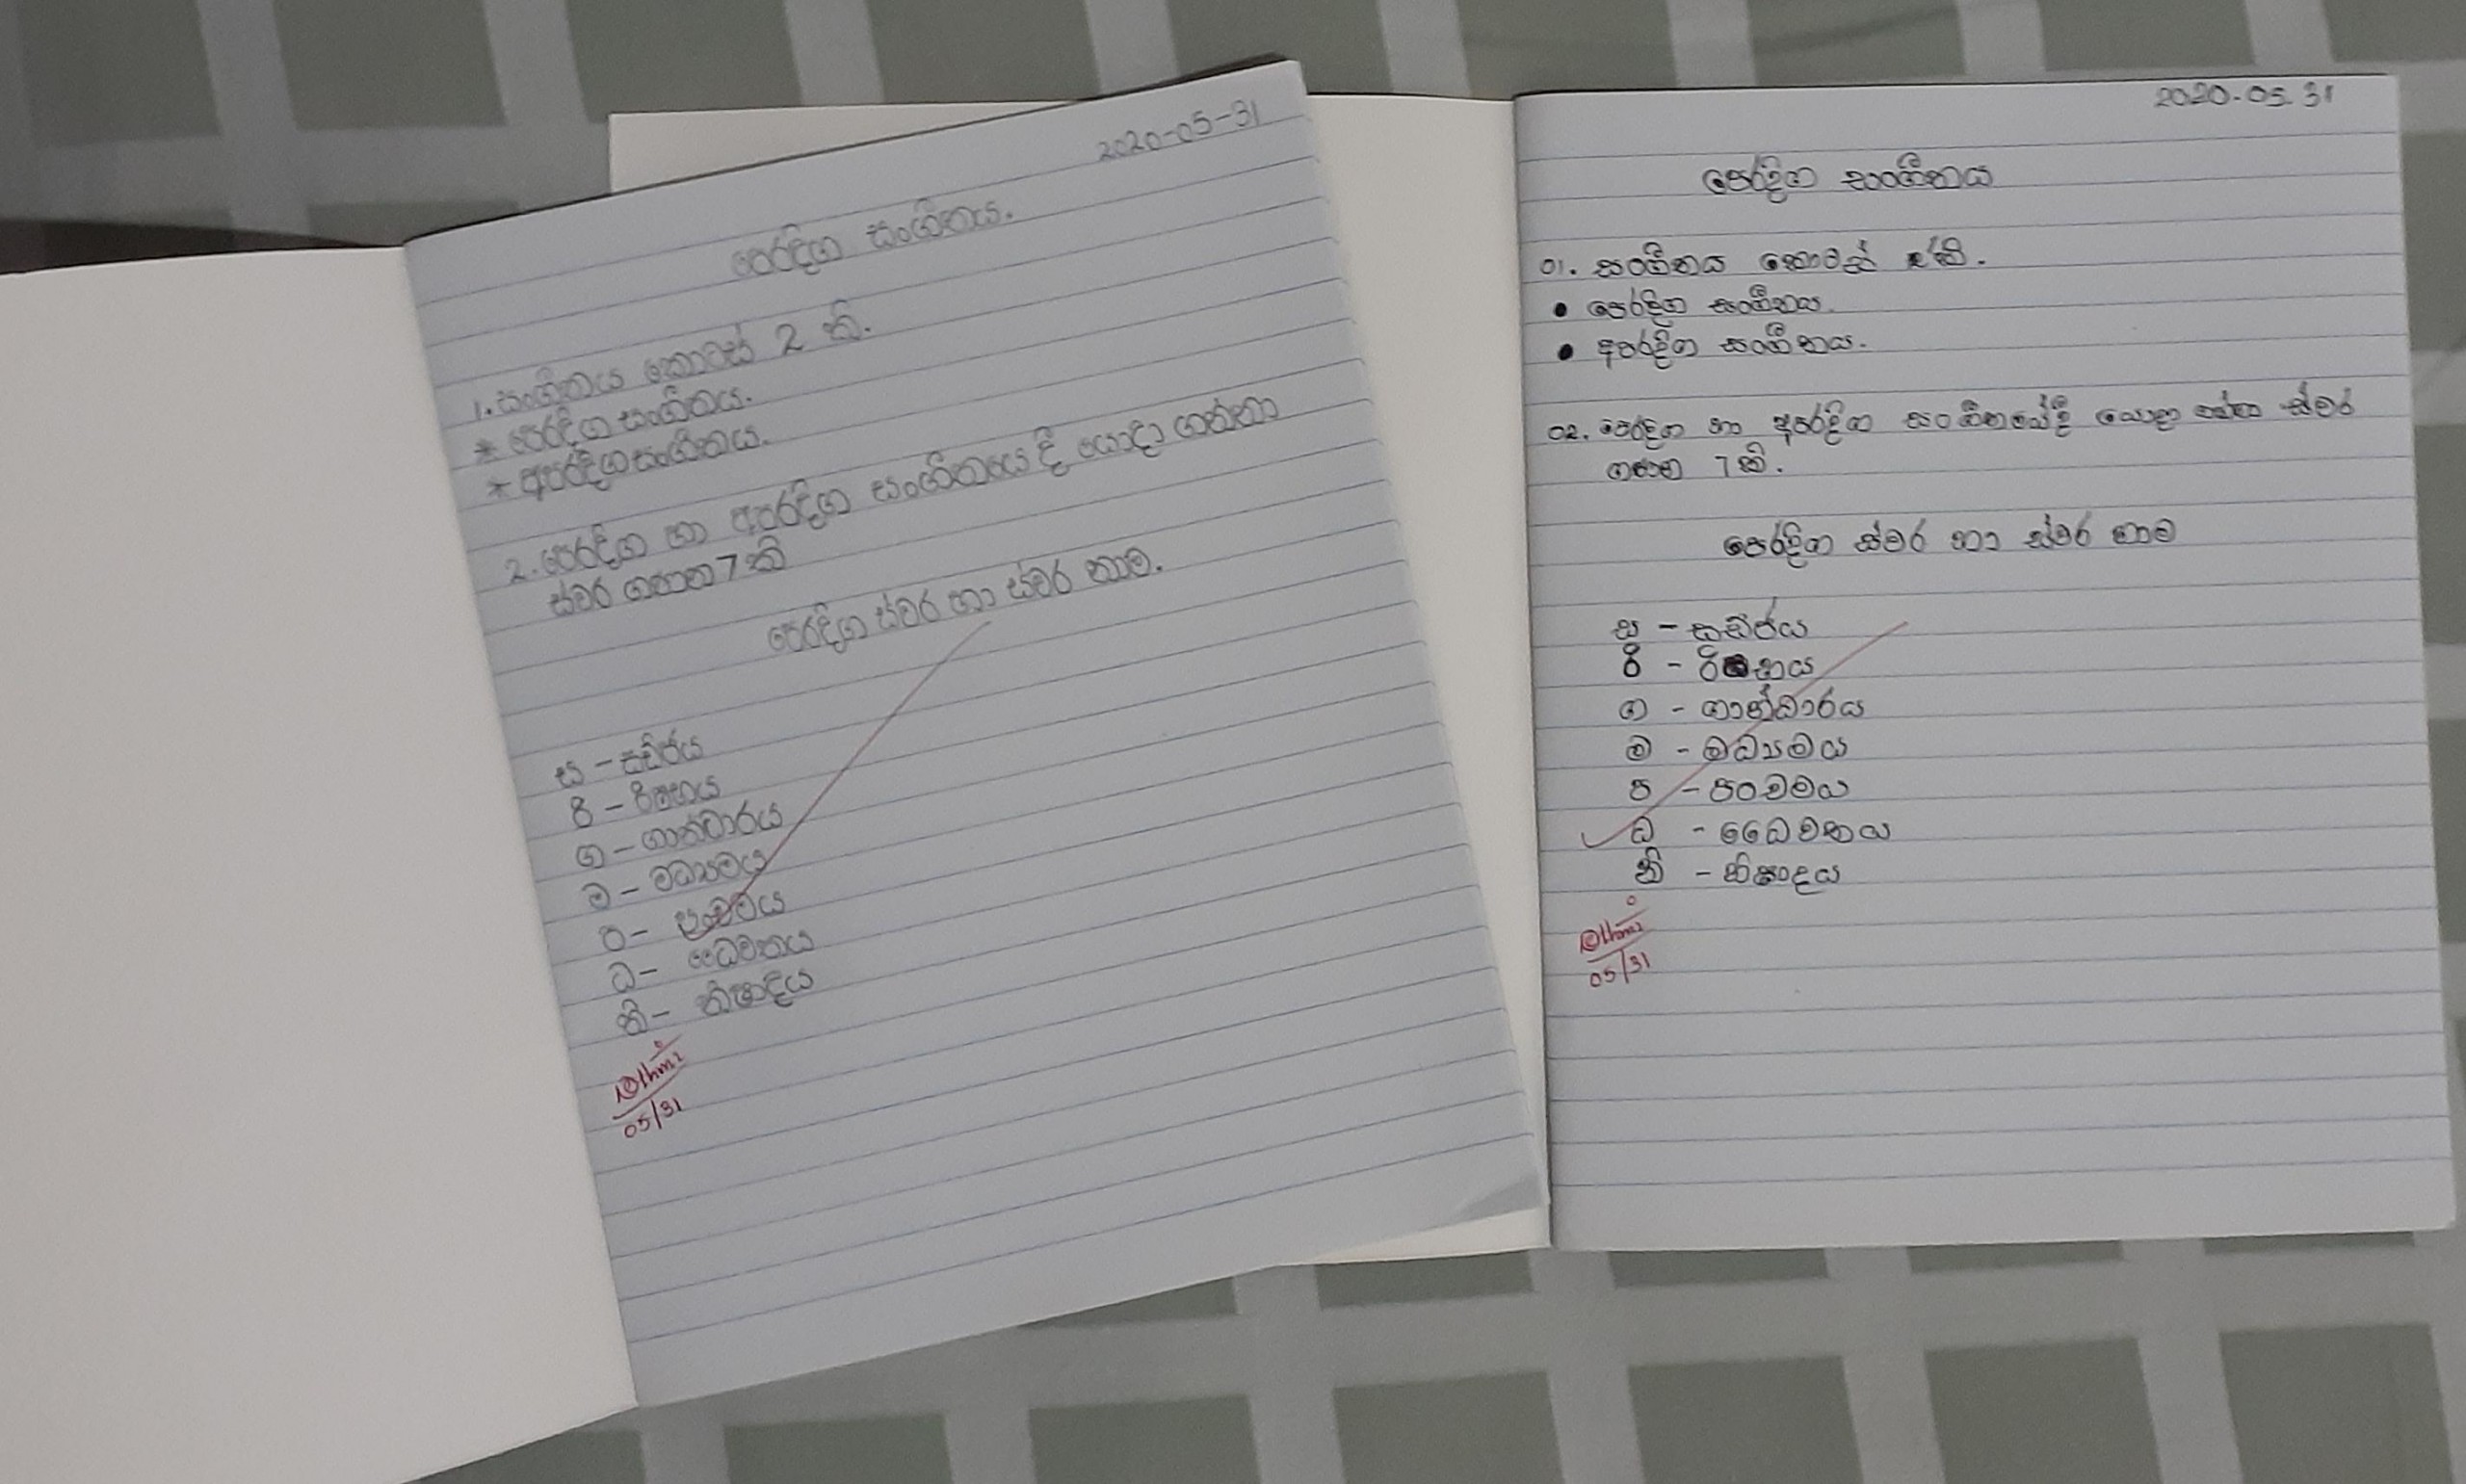 2020-05-31
පෙරදිග සංගීතය.
1. සංගීතය කොටස් 2 කි.
* පෙරදිග සංගීතය.
* අපරදිග සංගීතය.
2. පෙරදිග හා අපරදිග සංගීතයේ දී යොදා ගන්නා
ස්වර ගණන 7 කි
පෙරදිග ස්වර හා ස්වර නාම.
ස - සඩ්ජය
රි - රිෂභය
ග - ගාන්ධාරය
ම - මධ්‍යමය
ප - පංචමය
ධ - ධෛවතය
නි - නිෂාදය
05/31
2020.05.31
පෙරදිග සංගීතය
01. සංගීතය කොටස් 2කි.
• පෙරදිග සංගීතය.
• අපරදිග සංගීතය.
02. පෙරදිග හා අපරදිග සංගීතයේදී යොදා ගන්නා ස්වර
ගණන 7කි.
පෙරදිග ස්වර හා ස්වර නාම
ස - සඩ්ජය
රි - රිෂභය
ග - ගාන්ධාරය
ම - මධ්‍යමය
ප - පංචමය
ධ - ධෛවතය
නි - නිෂාදය
05/31